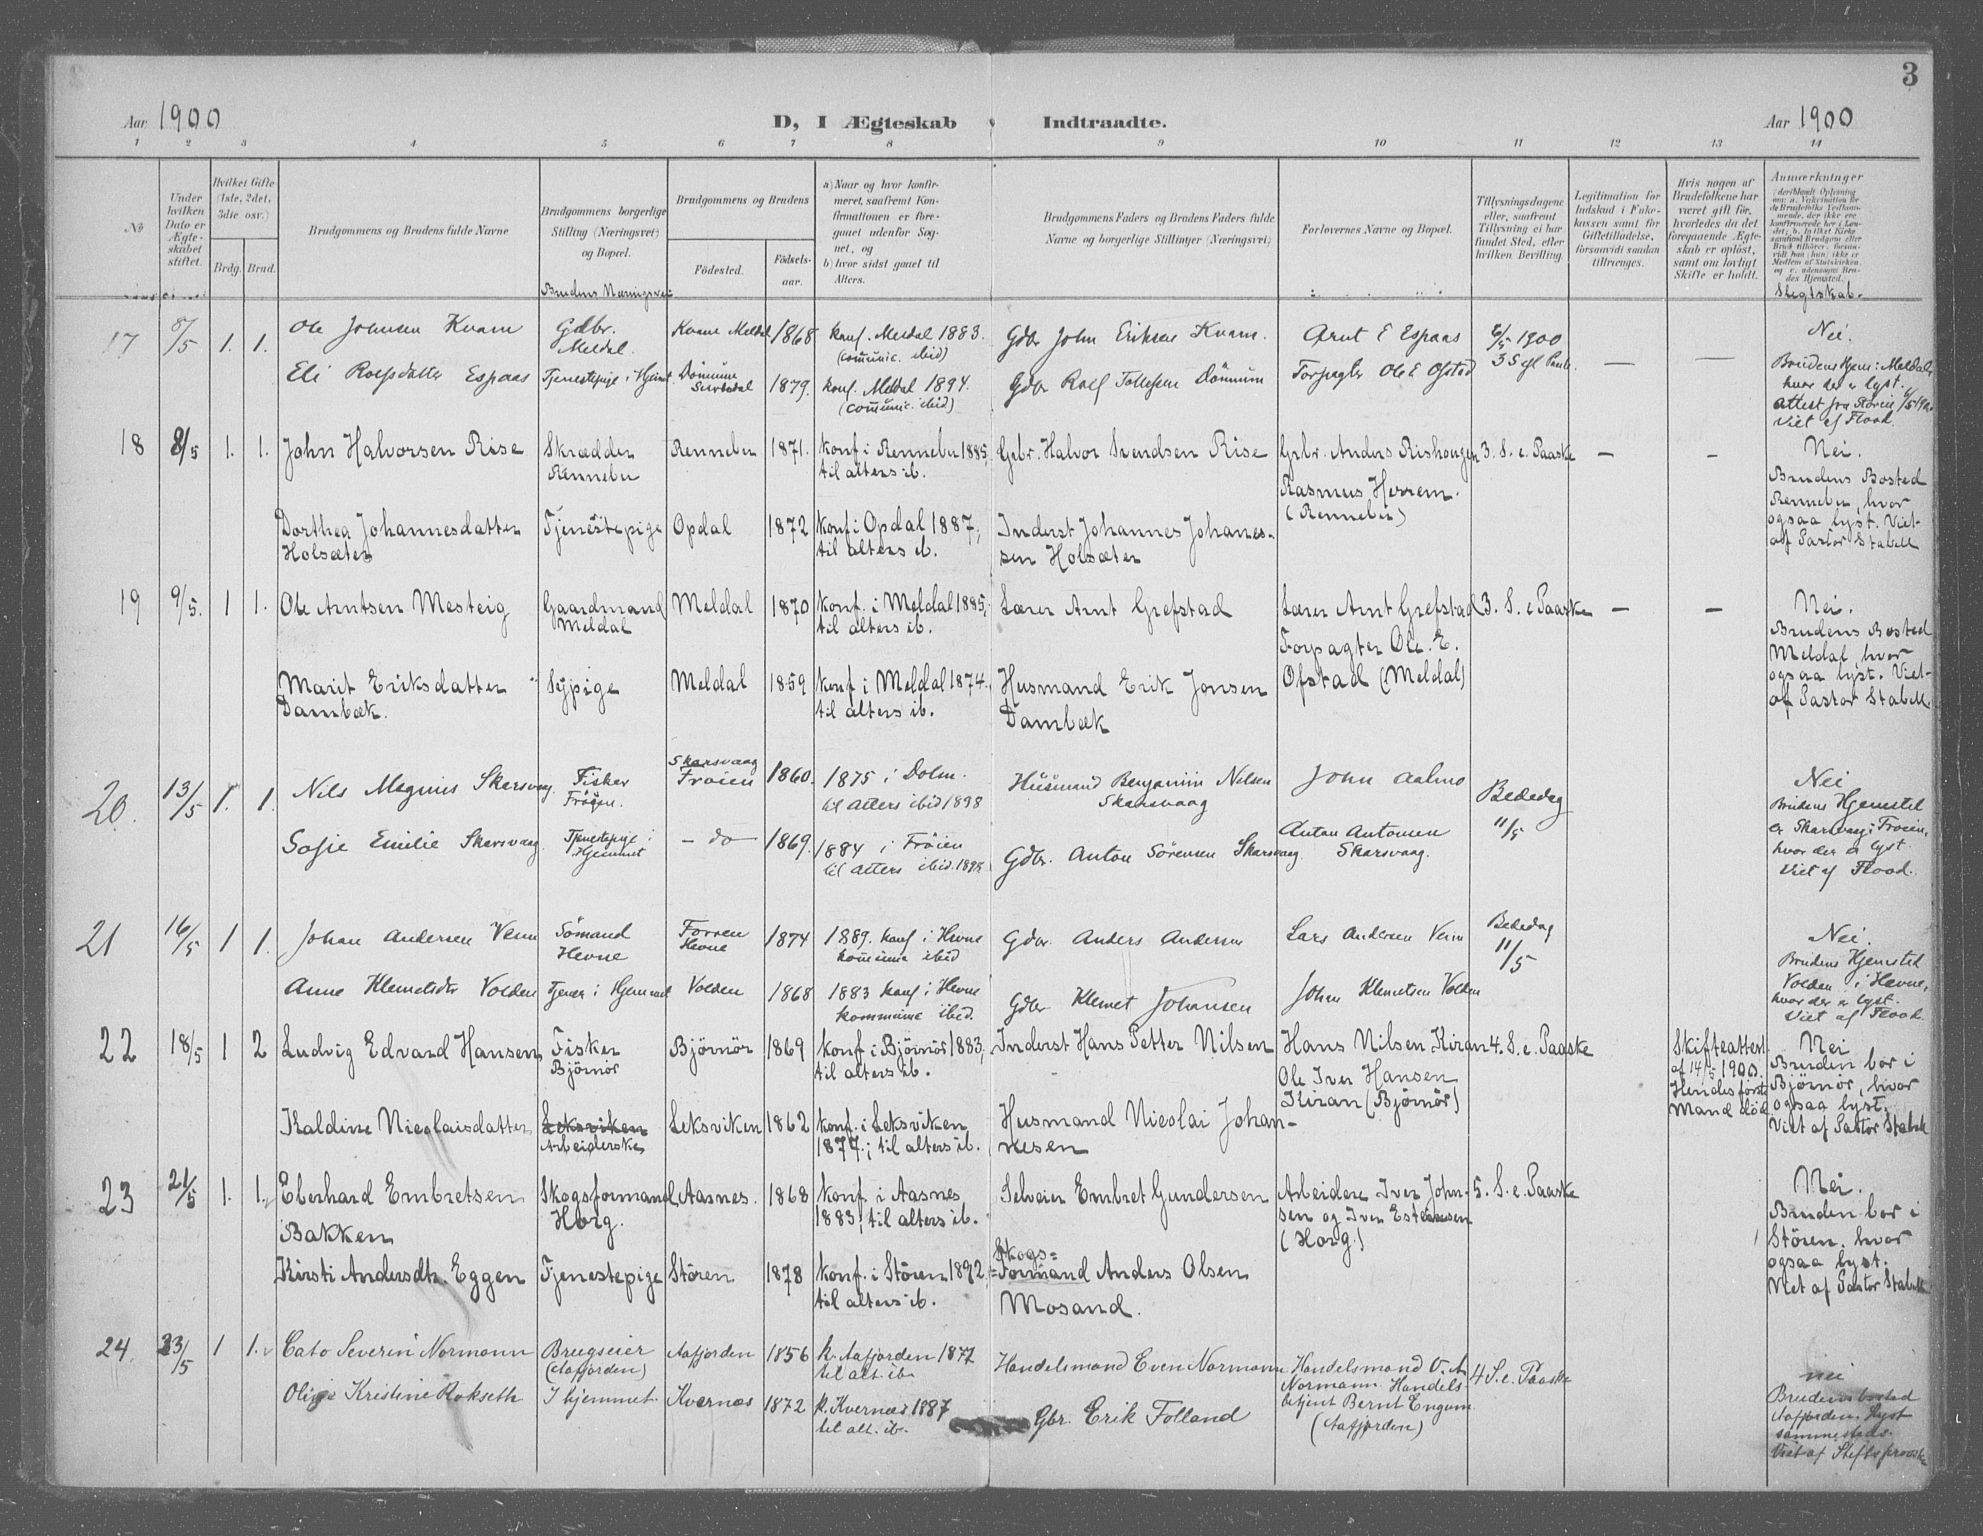 3
Aar 1900
D, I Ægteskab Indtraadte.
Aar 1900
1 2 3 4 5 6 7 8 9 10 11 12 13 14
No
Under hvilken Dato er Ægteskabet stiftet.
Hvilket Gifte (1ste, 2det, 3die osv.)
Brdg. Brud.
Brudgommens og Brudens fulde Navne
Brudgommens borgerlige Stilling (Næringsvei) og Bopæl.
Brudens Næringsvei
Brudgommens og Brudens
Fødested.
Fødselsaar.
a) Naar og hvor konfirmeret, saafremt Konfirmationen er foregaaet udenfor Sognet, og
b) hvor sidst gaaet til Alters.
Brudgommens Faders og Brudens Faders fulde Navne og borgerlige Stillinger (Næringsvei)
Forlovernes Navne og Bopæl.
Tillysningsdagene eller, saafremt Tillysning ei har fundet Sted, efter hvilken Bevilling.
Legitimation for Indskud i Enkekassen samt for Giftetilladelse, forsaavidt saadan tiltrænges.
Hvis nogen af Brudefolkene har været gift før, hvorledes da det foregaaende Ægteskab er opløst, samt om lovligt Skifte er holdt.
Anmærkninger
Slegtskab.
17 8/5 1. 1.
Ole Johnsen Kvam
Gdbr. Meldal.
Kvam Meldal 1868
konf. Meldal 1883.
(comunic. ibid)
Gdbr John Eriksen Kvam.
Arnt E Espaas
6/5 1900
Nei.
Eli Rolfsdatter Espaas
Tjenestepige i Hjemmet
Dønnum Surendal 1879.
konf. Meldal 1894.
(comunic. ibid)
Gdbr Rolf Tollefsen Dønnum
Forpagter Ole E Ofstad
Brudens Hjem: Meldal,
hvor der er lyst.
Viet af Flood.
18 8/5 1. 1.
John Halvorsen Rise
Skrædder
Rennebu
Rennebu 1871.
konf i Rennebu 1885,
til alters ib.
Grbr. Halvor Svendsen Rise
Grbr. Anders Rishaugen
Rasmus Herrem.
(Rennebu)
3. S. e. Paaske
— —
Nei.
Brudens Bosted
Rennebu, hvor
ogsaa lyst. Viet
af Pastor Stabell
Dorthea Johannesdatter
Holsæter
Tjenestepige
Opdal 1872
konf i Opdal 1887;
til alters ib.
Inderst Johannes Johanes-
sen Holsæter
19 9/5. 1 1.
Ole Arntsen Mesteig
Gaardmand
Meldal
Meldal 1870
konf. i Meldal 1885,
til alters ib.
Lærer Arnt Grefstad
Lærer Arnt Grefstad
Forpagter Ole. E.
Ofstad (Meldal)
3. S. e Paaske
— —
Nei.
Brudens Bosted
Meldal, hvor
ogsaa lyst. Viet
af Pastor Stabell.
Marit Eriksdatter
Dambæk.
Sypige
Meldal 1859
konf i Meldal 1874.
til alters ib.
Husmand Erik Jonsen
Dambæk
20. 13/5 1. 1.
Nils Magnus Skarsvaag.
Fisker
Frøien.
Skarsvaag
Frøien 1860.
1875 i Dolm.
til Alters ibid 1898
Husmand Benjamin Nilsen
Skarsvaag
John Aalmo
Bededag
11/5
Nei
Brudens Hjemsted
er Skarsvaag i Frøien,
hvor der er lyst.
Viet af Flood.
Sofie Emilie Skarsvaag.
Tjenestepige i
Hjemmet
— do — 1869.
1884 i Frøien
til Alters ibid. 1898
Gdbr. Anton Sørensen Skarsvaag.
Anton Antonsen
Skarsvaag.
21 16/5 1 1.
Johan Andersen Venn
Sømand
Hevne
Forren
Hevne 1874
1889. konf i Hevne
Gdbr. Anders Andersen
Lars Andersen Venn
Bededag
11/5
Nei.
Brudens Hjemsted
Volden i Hevne,
hvor der er lyst.
Viet af Flood.
Anne Klemetsdtr Volden
Tjener i Hjemmet
Volden 1868
1883 konf i Hevne
kommune ibid.
Gdbr Klemet Johansen
Johan Klemetsen Volden
22 18/5 1 2
Ludvig Edvard Hansen
Fisker
Bjørnør
Bjørnør 1869
konf i Bjørnør 1883,
til alters ib.
Inderst Hans Petter Nilsen
Hans Nilsen Kiran
Ole Iver Hansen
Kiran (Bjørnør)
4. S. e. Paaske
Skifteattest
af 14/5 1900.
Hendes første
Mand død.
Nei
Bruden bor i
Bjørnør, hvor
ogsaa lyst.
Viet af Pastor Stabell
Kaldine Nicolaisdatter
Leksviken
Arbeiderske
Leksviken 1862
konf. i Leksviken
1877; til alters ib.
Husmand Nicolai Johan-
nesen
23 21/5 1. 1.
Eberhard Embretsen
Bakken
Skogsformand
Horg.
Aasnes. 1868
konf. i Aasnes
1883, til alters ib.
Selveier Embret Gundersen
Arbeidere Iver John-
sen og Iver Estensen
(Horg.)
5. S. e. Paaske
Nei.
Bruden bor i
Støren, hvor
ogsaa lyst.
Viet af Pastor Stabell
Kirsti Andersdtr. Eggen
Tjenestepige
Støren 1878
konf. i Støren 1892,
til alters ib.
Skogs=
=Formand Anders Olsen
Mosand.
24. 23/5 1 1.
Cato Severin Normann
Brugseier
(Aafjorden)
Aafjorden 1856
k. Aafjorden 1877
til alt. ib.
Handelsmand Even Normann
Handelsmand O. A.
Normann. Handels-
betjent Bernt Engum
(Aafjorden)
4 S. e. Paaske
nei
Brudens bosted
Aafjorden. Lyst
sammesteds.
Viet af Stiftsprovsten
Oliva Kristine Rokseth
I hjemmet
Kvernes 1872
k. Kvernes 1887
til alt. ib.
Gbr. Erik Folland